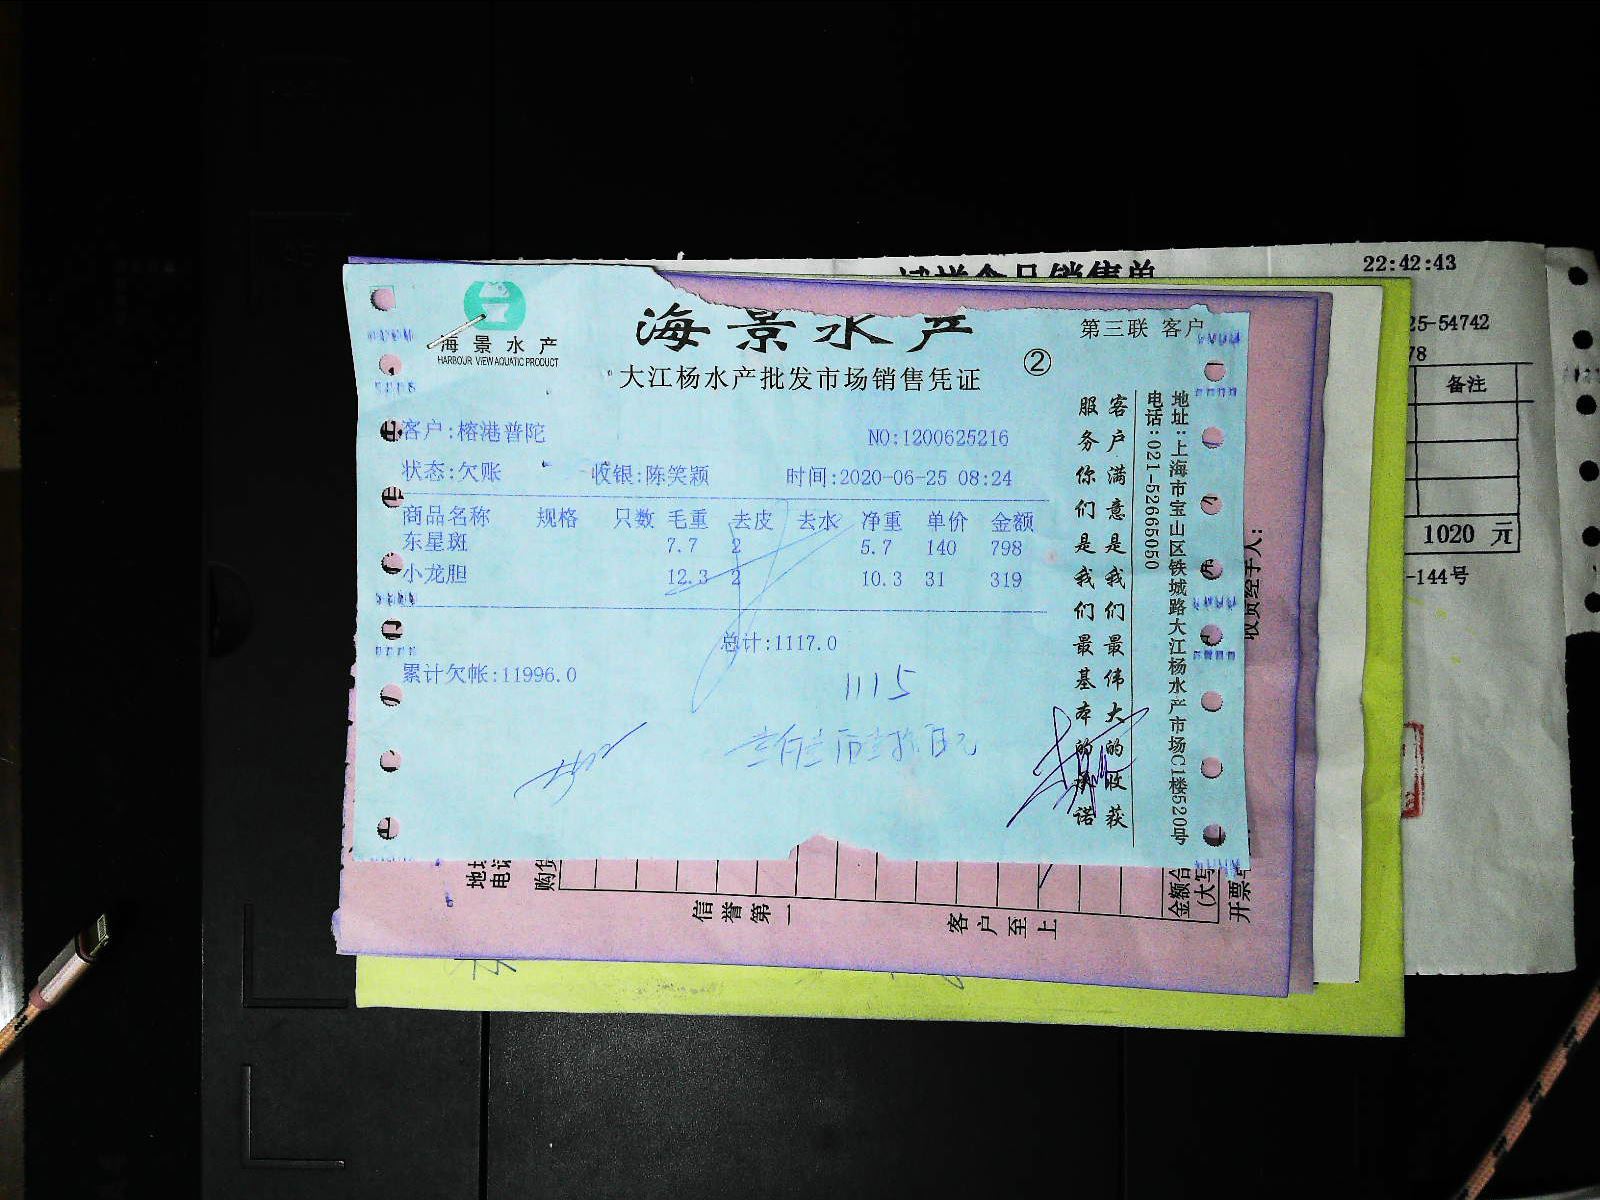 海景水产
HARBOUR VIEW AQUATIC PRODUCT
海景水产
第三联 客户
大江杨水产批发市场销售凭证
②
客户:榕港普陀
NO:1200625216
状态:欠账 收银:陈笑颖 时间:2020-06-25 08:24
商品名称 规格 只数 毛重 去皮 去水 净重 单价 金额
东星斑 7.7 2 5.7 140 798
小龙胆 12.3 2 10.3 31 319
总计:1117.0
累计欠帐:11996.0
1115
客户满意是我们最伟大的收获
服务你们是我们最基本的承诺
地址:上海市宝山区铁城路大江杨水产市场C1楼520号
电话:021-52665050
食品销售单
22:42:43
25-54742
78
备注
1020 元
-144号
收货经手人:
电话
信誉第一
客户至上
金额合
(大写
开票